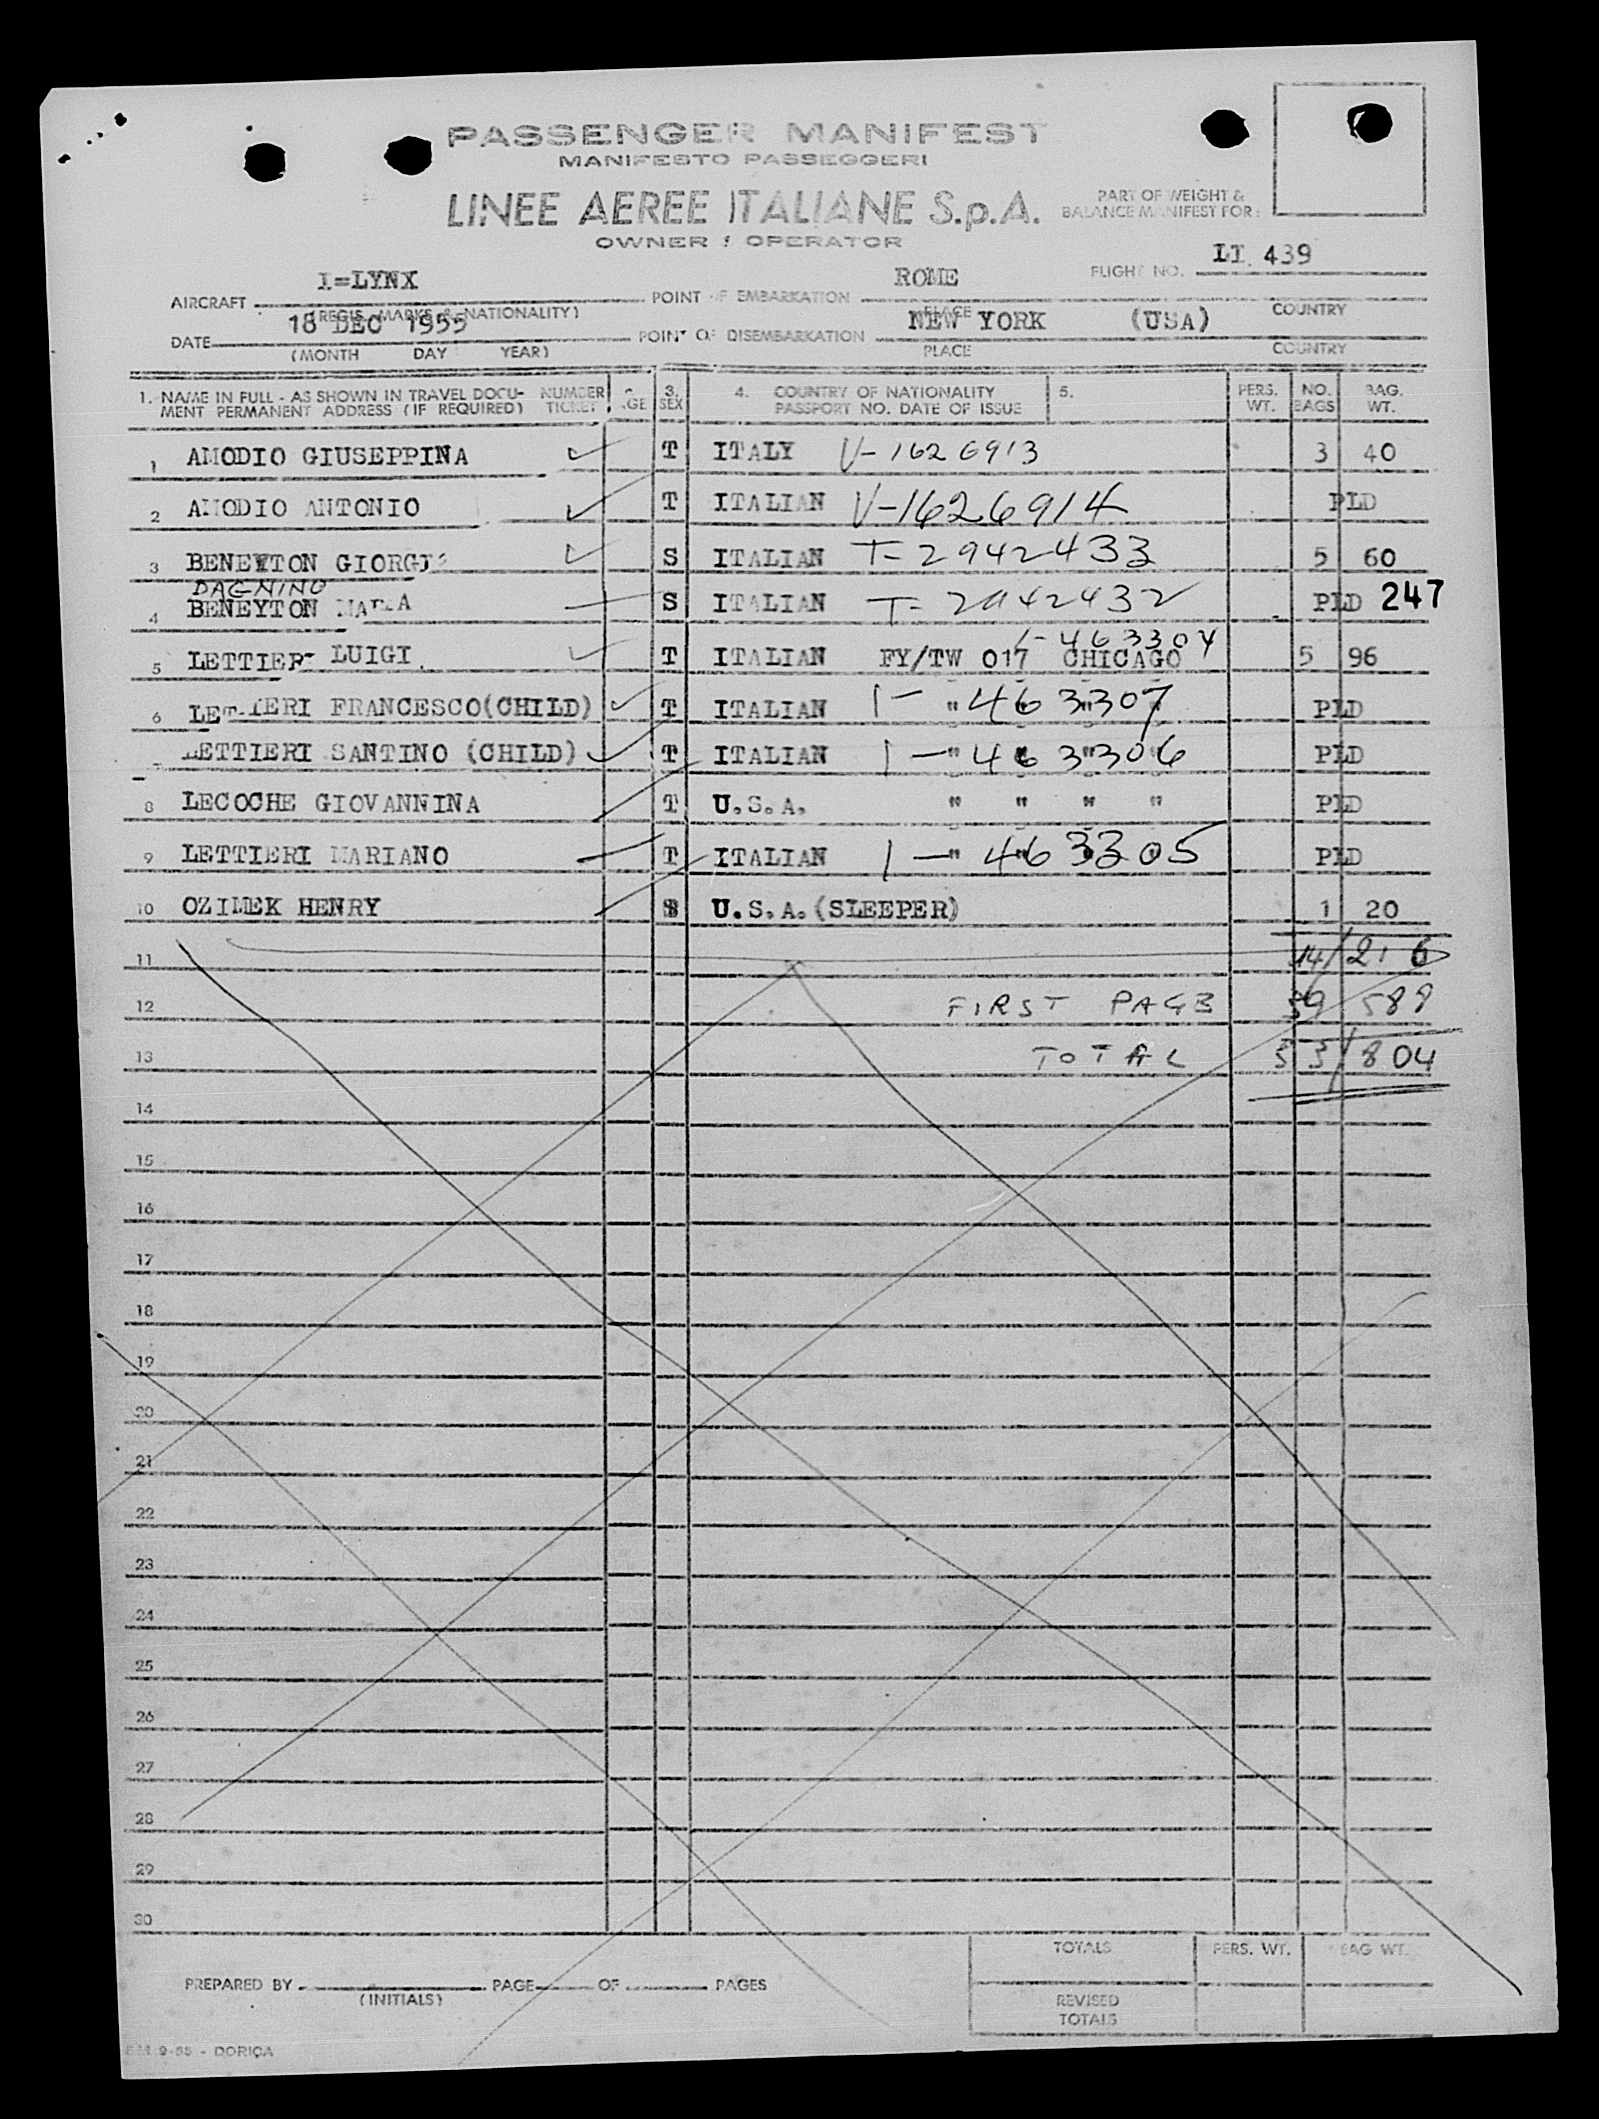 PASSENGER MANIFEST
MANIFESTO PASSEGGERI
LINEE AEREE ITALIANE S.p.A.
OWNER / OPERATOR
PART OF WEIGHT &
BALANCE MANIFEST FOR:
FLIGHT NO. LI. 439
AIRCRAFT I=LYNX POINT OF EMBARKATION ROME
(REGIS. MARKS & NATIONALITY) PLACE COUNTRY
DATE 18 DEC 1955 POINT OF DISEMBARKATION NEW YORK (USA)
(MONTH DAY YEAR) PLACE COUNTRY
1. NAME IN FULL - AS SHOWN IN TRAVEL DOCU- NUMBER 3. 4. COUNTRY OF NATIONALITY 5. PERS. NO. BAG.
MENT PERMANENT ADDRESS (IF REQUIRED) TICKET AGE SEX PASSPORT NO. DATE OF ISSUE WT. BAGS WT.
1 AMODIO GIUSEPPINA T ITALY V-1626913 3 40
2 AMODIO ANTONIO T ITALIAN V-1626914 PLD
3 BENEYTON GIORGIO S ITALIAN T-2942433 5 60
DAGNINO
4 BENEYTON MARIA S ITALIAN T-2942432 PLD 247
1-463304
5 LETTIERI LUIGI T ITALIAN FY/TW 017 CHICAGO 5 96
6 LETTIERI FRANCESCO(CHILD) T ITALIAN 1- " 463307 PLD
LETTIERI SANTINO (CHILD) T ITALIAN 1-" 463306 PLD
8 LECOCHE GIOVANNINA T U.S.A. " " " " PLD
9 LETTIERI MARIANO T ITALIAN 1-" 463305 PLD
10 OZIMEK HENRY S U.S.A.(SLEEPER) 1 20
11 14/216
12 FIRST PAGE 39 588
13 TOTAL 53/804
14
15
16
17
18
19
20
21
22
23
24
25
26
27
28
29
30
TOTALS PERS. WT. BAG WT.
PREPARED BY PAGE OF PAGES
(INITIALS)
REVISED
TOTALS
9-55 - DORICA